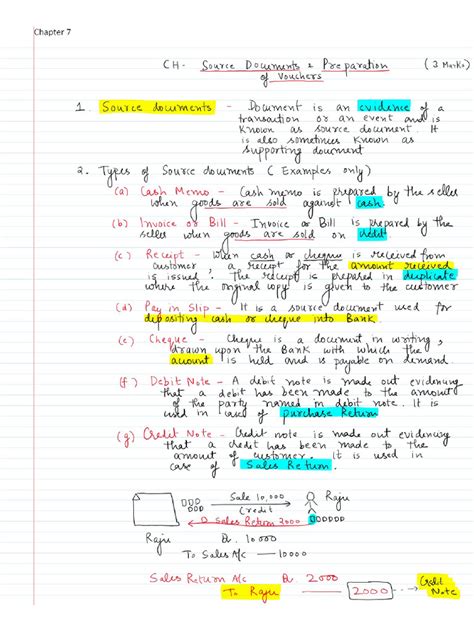 Chapter 7
CH- Source Documents & Preparation (3 Marks)
of Vouchers
1. Source documents - Document is an evidence of a
transaction or an event and is
known as source document. It
is also sometimes known as
supporting document
2. Types of Source documents (Examples only)
(a) Cash Memo - Cash memo is prepared by the seller
when goods are sold against cash.
(b) Invoice or Bill - Invoice or Bill is prepared by the
seller when goods are sold on credit
(c) Receipt - When cash or cheque is received from
customer, a receipt for the amount received
is issued, the receipt is prepared in duplicate
where the original copy is given to the customer
(d) Pay in Slip - It is a source document used for
depositing cash or cheque into Bank.
(e) Cheque - Cheque is a document in writing,
drawn upon the Bank with which the
account is held and is payable on demand.
(f) Debit Note - A debit note is made out evidencing
that a debit has been made to the amount
of the party named in debit note. It is
used in case of purchase Return
(g) Credit Note - Credit note is made out evidencing
that a credit has been made to the
amount of customer. It is used in
case of Sales Return.
Sale 10,000
Credit
Raju
Sales Return 2000
Raju Dr. 10,000
To Sales A/c — 10000
Sales Return A/c Dr. 2000
To Raju 2000 Credit
Note